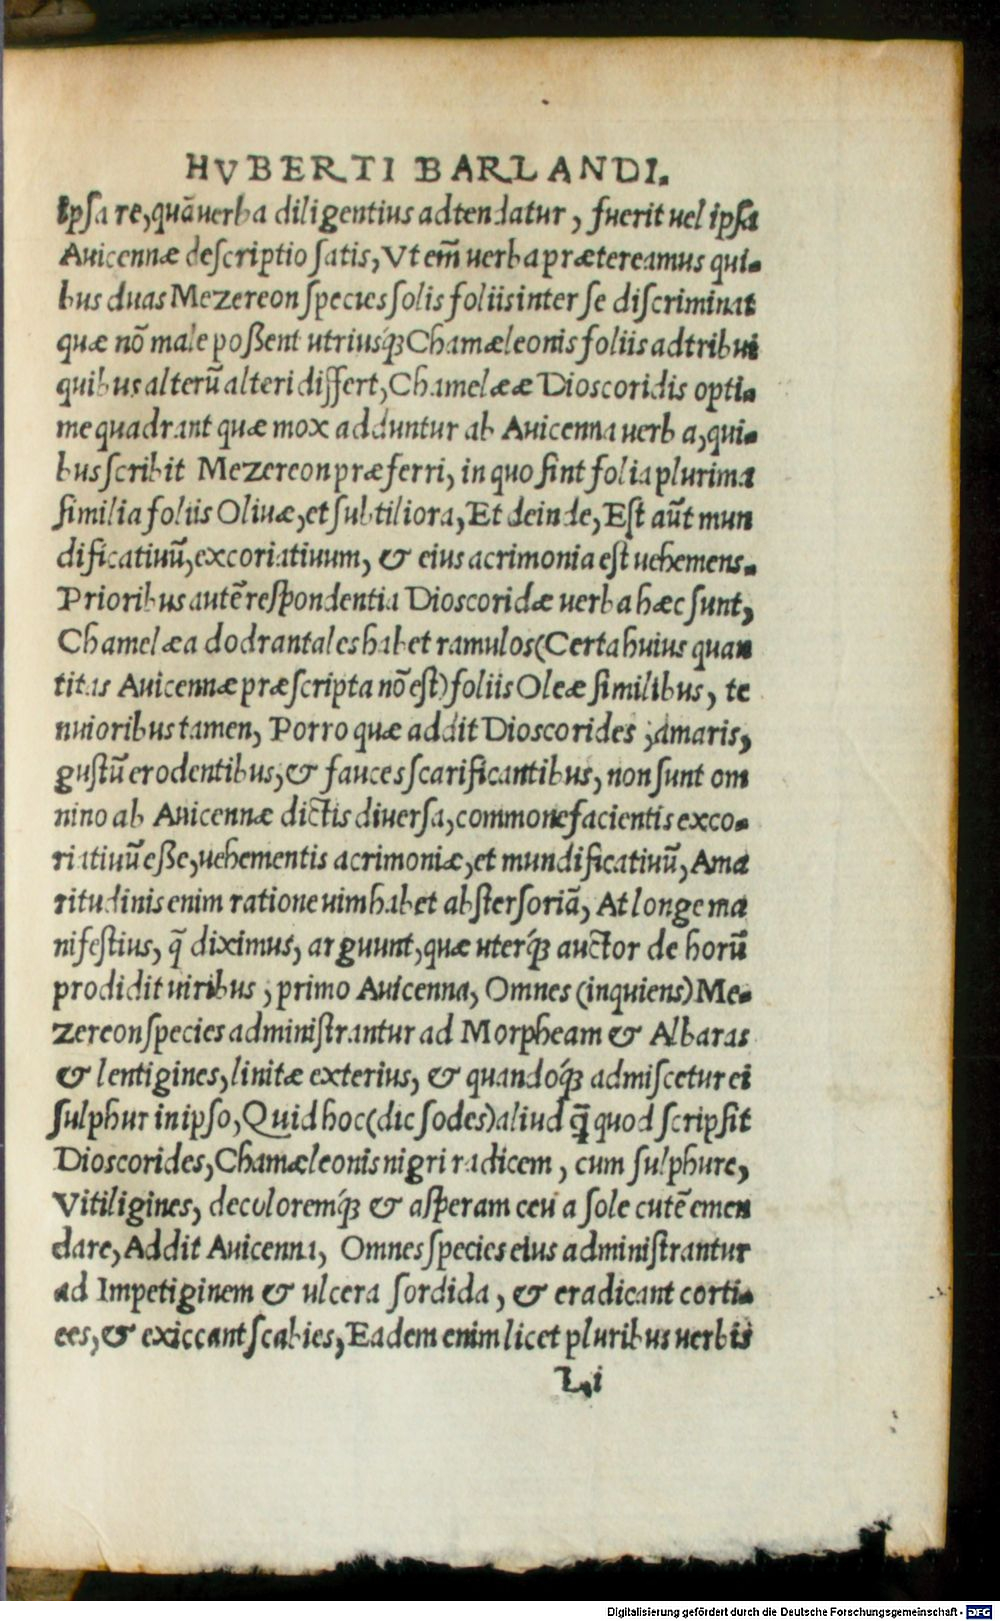 HVBERTI BARLANDI.
Ipsa re, quā verba diligentius adtendatur, fuerit uel ipsa
Auicennæ descriptio satis, Vt em̄ uerba prætereamus qui-
bus duas Mezereon species solis foliis inter se discriminat
quæ nō male poßent utriusq́ꝫ Chamæleonis foliis adtribui
quibus alterū alteri differt, Chamelææ Dioscoridis opti-
me quadrant quæ mox adduntur ab Auicenna uerba, qui-
bus scribit Mezereon præferri, in quo sint folia plurima
similia foliis Oliuæ, et subtiliora, Et deinde, Est aūt mun
dificatiuū, excoriatiuum, & eius acrimonia est uehemens.
Prioribus autē respondentia Dioscoridæ uerba hæc sunt,
Chamelæa dodrantales habet ramulos (Certa huius quan
titas Auicennæ præscripta nō est) foliis Oleæ similibus, te
nuioribus tamen, Porro quæ addit Dioscorides, amaris,
gustū erodentibus, & fauces scarificantibus, non sunt om
nino ab Auicennæ dictis diuersa, commonefacientis exco-
riatiuū eße, uehementis acrimoniæ, et mundificatiuū, Ama
ritudinis enim ratione uim habet abstersoriā, At longe ma
nifestius, q̄ diximus, arguunt, quæ uterq́ꝫ auctor de horū
prodidit uiribus, primo Auicenna, Omnes (inquiens) Me-
zereon species administrantur ad Morpheam & Albaras
& lentigines, linitæ exterius, & quandoq́ꝫ admiscetur ei
sulphur in ipso, Quid hoc (dic sodes) aliud q̄ quod scripsit
Dioscorides, Chamæleonis nigri radicem, cum sulphure,
Vitiligines, decoloremq́ꝫ & asperam ceu a sole cutē emen
dare, Addit Auicenna, Omnes species eius administrantur
ad Impetiginem & ulcera sordida, & eradicant corti-
ces, & exiccant scabies, Eadem enim licet pluribus uerbis
L,i
Digitalisierung gefördert durch die Deutsche Forschungsgemeinschaft - DFG